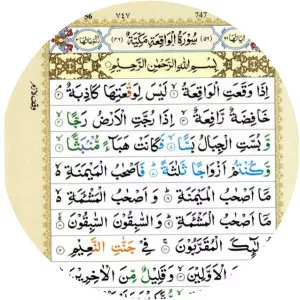 56 ٧٤٧ 747
سُوْرَةُ الْوَاقِعَةِ مَكِّيَّةٌ
بِسْمِ اللّٰهِ الرَّحْمٰنِ الرَّحِيْمِ
اِذَا وَقَعَتِ الْوَاقِعَةُ لَيْسَ لِوَقْعَتِهَا كَاذِبَةٌ
خَافِضَةٌ رَّافِعَةٌ اِذَا رُجَّتِ الْاَرْضُ رَجًّا
وَّ بُسَّتِ الْجِبَالُ بَسًّا فَكَانَتْ هَبَآءً مُّنْۢبَثًّا
وَّ كُنْتُمْ اَزْوَاجًا ثَلٰثَةً فَاَصْحٰبُ الْمَيْمَنَةِ
مَاۤ اَصْحٰبُ الْمَيْمَنَةِ وَ اَصْحٰبُ الْمَشْـَٔمَةِ
مَاۤ اَصْحٰبُ الْمَشْـَٔمَةِ وَ السّٰبِقُوْنَ السّٰبِقُوْنَ
لٰٓىِٕكَ الْمُقَرَّبُوْنَ فِيْ جَنّٰتِ النَّعِيْمِ
الْاَوَّلِيْنَ وَ قَلِيْلٌ مِّنَ الْاٰخِرِيْنَ